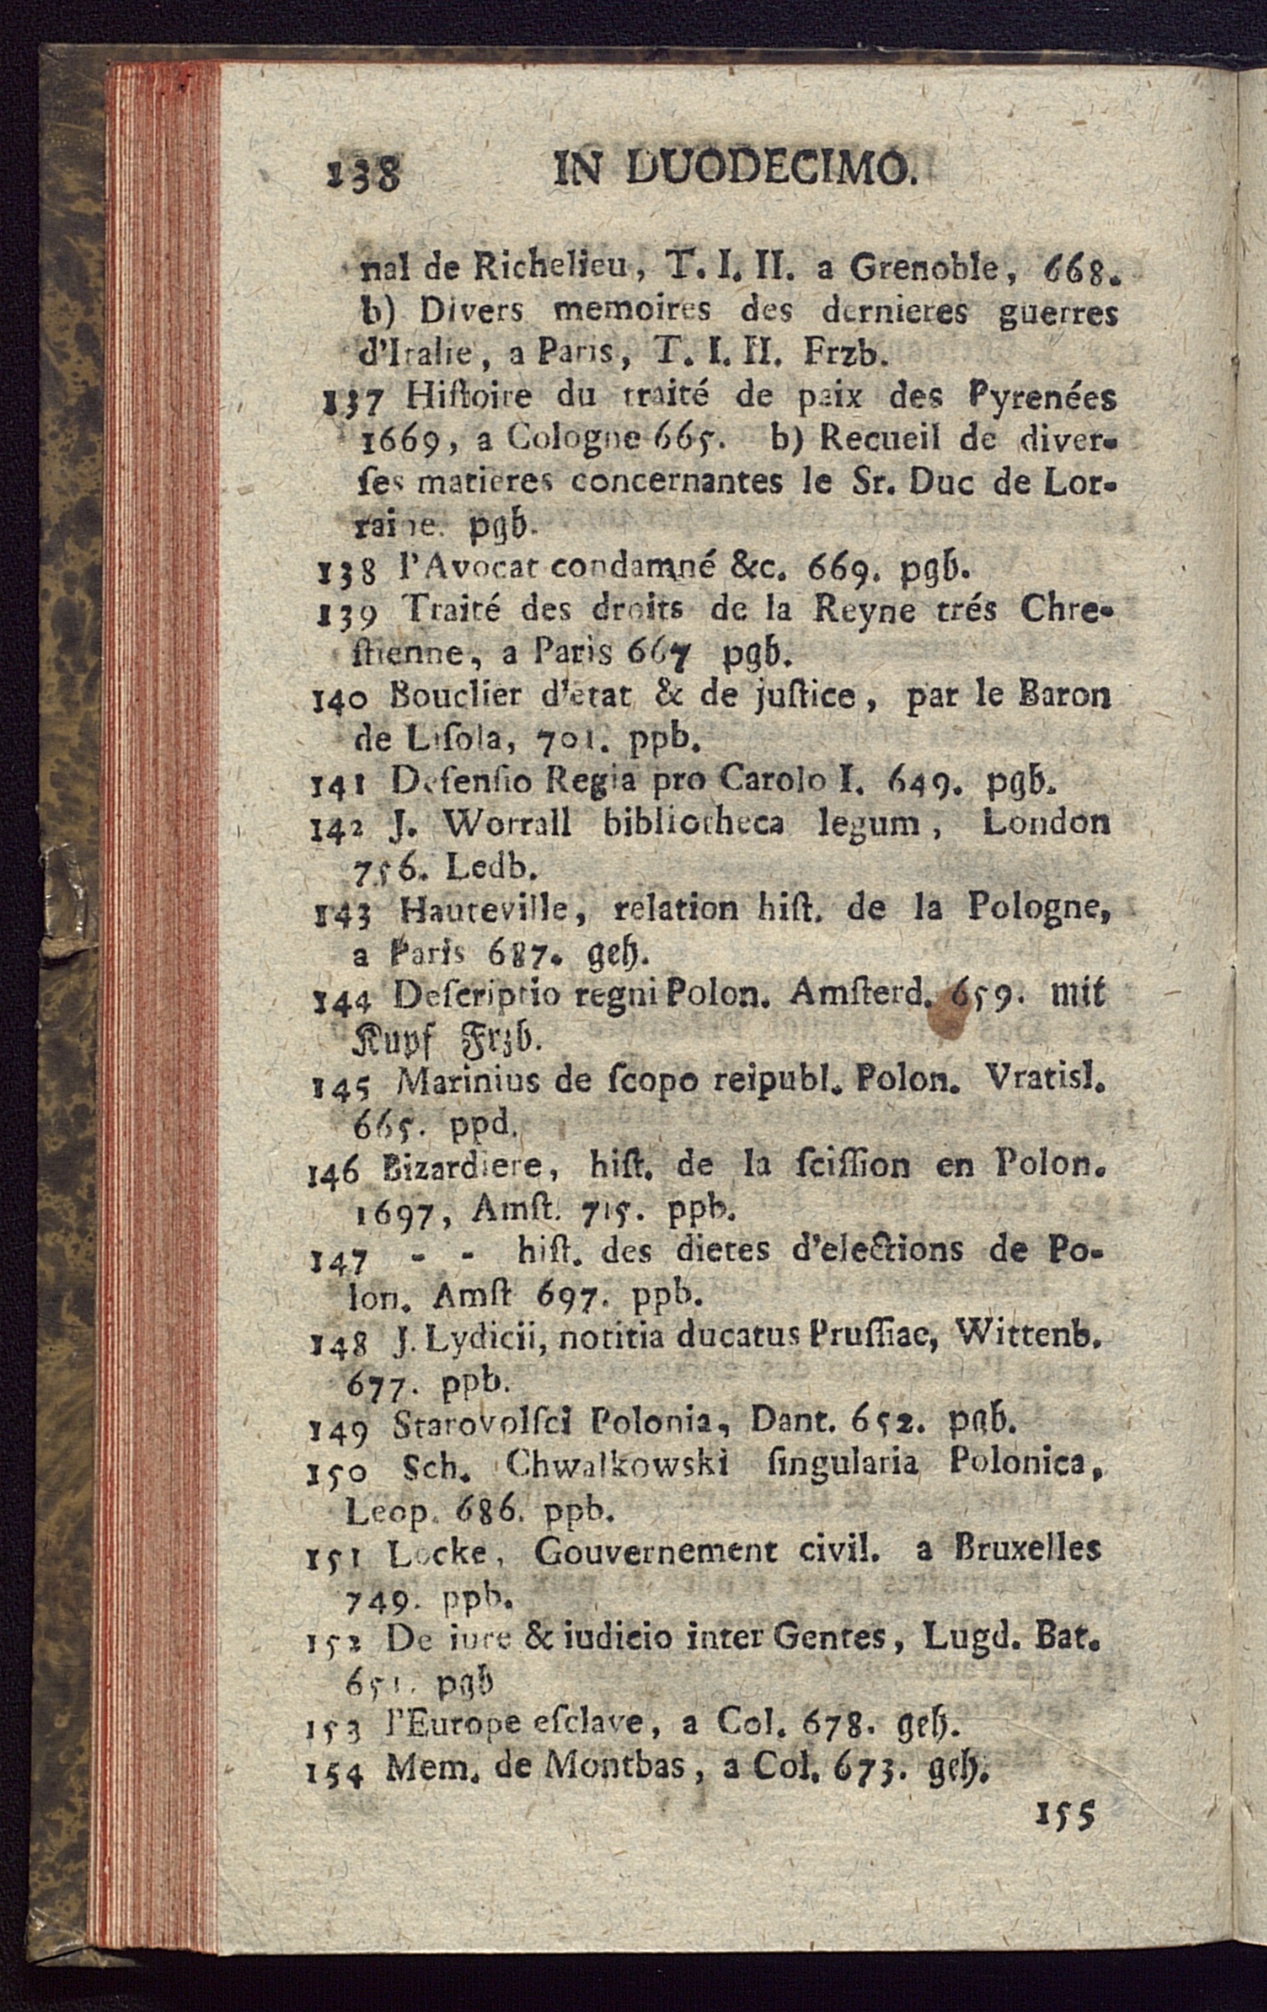 138 IN DUODECIMO.
nal de Richelieu, T. I. II. a Grenoble, 668.
b) Divers memoires des dernieres guerres
d'Italie, a Paris, T. I. II. Frzb.
137 Hiſtoire du traité de paix des Pyrenées
1669, a Cologne 665. b) Recueil de diver-
ſes matieres concernantes le Sr. Duc de Lor-
raine. pgb.
138 l'Avocat condamné &c. 669. pgb.
139 Traité des droits de la Reyne trés Chre-
ſtienne, a Paris 667 pgb.
140 Bouclier d'etat & de juſtice, par le Baron
de Liſola, 701. ppb.
141 Defenſio Regia pro Carolo I. 649. pgb.
142 J. Worrall bibliotheca legum, London
756. Ledb.
143 Hauteville, relation hiſt. de la Pologne,
a Paris 687. geh.
144 Deſcriptio regni Polon. Amſterd. 659. mit
Kupf Frzb.
145 Marinius de ſcopo reipubl. Polon. Vratisl.
665. ppd.
146 Bizardiere, hiſt. de la ſciſſion en Polon.
1697, Amſt. 715. ppb.
147 - - hiſt. des dietes d'elections de Po-
lon. Amſt 697. ppb.
148 J. Lydicii, notitia ducatus Pruſſiae, Wittenb.
677. ppb.
149 Starovolſci Polonia, Dant. 652. pgb.
150 Sch. Chwalkowski ſingularia Polonica,
Leop. 686. ppb.
151 Locke, Gouvernement civil. a Bruxelles
749. ppb.
152 De iure & iudicio inter Gentes, Lugd. Bat.
651. pgb
153 l'Europe eſclave, a Col. 678. geh.
154 Mem. de Montbas, a Col. 673. geh.
155